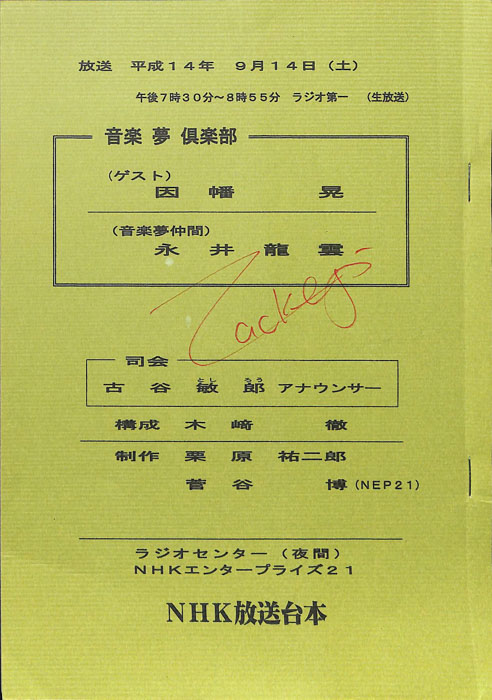 放送　平成１４年　９月１４日（土）
午後７時３０分～８時５５分　ラジオ第一　（生放送）
音楽 夢 倶楽部
（ゲスト）
因　幡　　　晃
（音楽夢仲間）
永　井　龍　雲
司会
とし　ろう
古　谷　敏　郎　アナウンサー
構成　木　﨑　　　徹
制作　栗　原　祐二郎
菅　谷　　　博（NEP21）
ラジオセンター（夜間）
ＮＨＫエンタープライズ２１
NHK放送台本